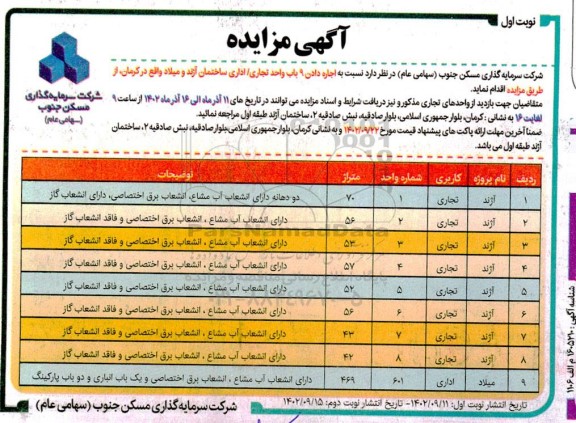 نوبت اول
آگهی مزایده
شرکت سرمایه‌گذاری
مسکن جنوب
(سهامی عام)
شرکت سرمایه گذاری مسکن جنوب (سهامی عام) در نظر دارد نسبت به اجاره دادن ۹ باب واحد تجاری/ اداری ساختمان آژند و میلاد واقع در کرمان، از
طریق مزایده اقدام نماید.
متقاضیان جهت بازدید از واحدهای تجاری مذکور و نیز دریافت شرایط و اسناد مزایده می توانند در تاریخ های ۱۱ آذرماه الی ۱۶ آذرماه ۱۴۰۲ از ساعت ۹
لغایت ۱۶ به نشانی: کرمان، بلوار جمهوری اسلامی، بلوار صادقیه، نبش صادقیه ۲، ساختمان آژند طبقه اول مراجعه نمائید.
ضمناً آخرین مهلت ارائه پاکت های پیشنهاد قیمت مورخ ۱۴۰۲/۰۹/۲۲ و به نشانی کرمان، بلوار جمهوری اسلامی بلوار صادقیه، نبش صادقیه ۲، ساختمان
آژند طبقه اول می باشد.
ردیف نام پروژه کاربری شماره واحد متراژ توضیحات
۱ آژند تجاری ۱ ۷۰ دو دهانه دارای انشعاب آب مشاع، انشعاب برق اختصاصی، دارای انشعاب گاز
۲ آژند تجاری ۲ ۵۶ دارای انشعاب آب مشاع ، انشعاب برق اختصاصی و فاقد انشعاب گاز
۳ آژند تجاری ۳ ۵۳ دارای انشعاب آب مشاع ، انشعاب برق اختصاصی و فاقد انشعاب گاز
۴ آژند تجاری ۴ ۵۷ دارای انشعاب آب مشاع ، انشعاب برق اختصاصی و فاقد انشعاب گاز
۵ آژند تجاری ۵ ۵۲ دارای انشعاب آب مشاع ، انشعاب برق اختصاصی و فاقد انشعاب گاز
۶ آژند تجاری ۶ ۵۶ دارای انشعاب آب مشاع ، انشعاب برق اختصاصی و فاقد انشعاب گاز
۷ آژند تجاری ۷ ۴۳ دارای انشعاب آب مشاع ، انشعاب برق اختصاصی و فاقد انشعاب گاز
۸ آژند تجاری ۸ ۴۲ دارای انشعاب آب مشاع ، انشعاب برق اختصاصی و فاقد انشعاب گاز
۹ میلاد اداری ۶۰۱ ۴۶۹ دارای انشعاب آب مشاع ، انشعاب برق اختصاصی و یک باب انباری و دو باب پارکینگ
تاریخ انتشار نوبت اول: ۱۴۰۲/۰۹/۱۱- تاریخ انتشار نوبت دوم: ۱۴۰۲/۰۹/۱۵
شرکت سرمایه گذاری مسکن جنوب (سهامی عام)
ParsNamadData